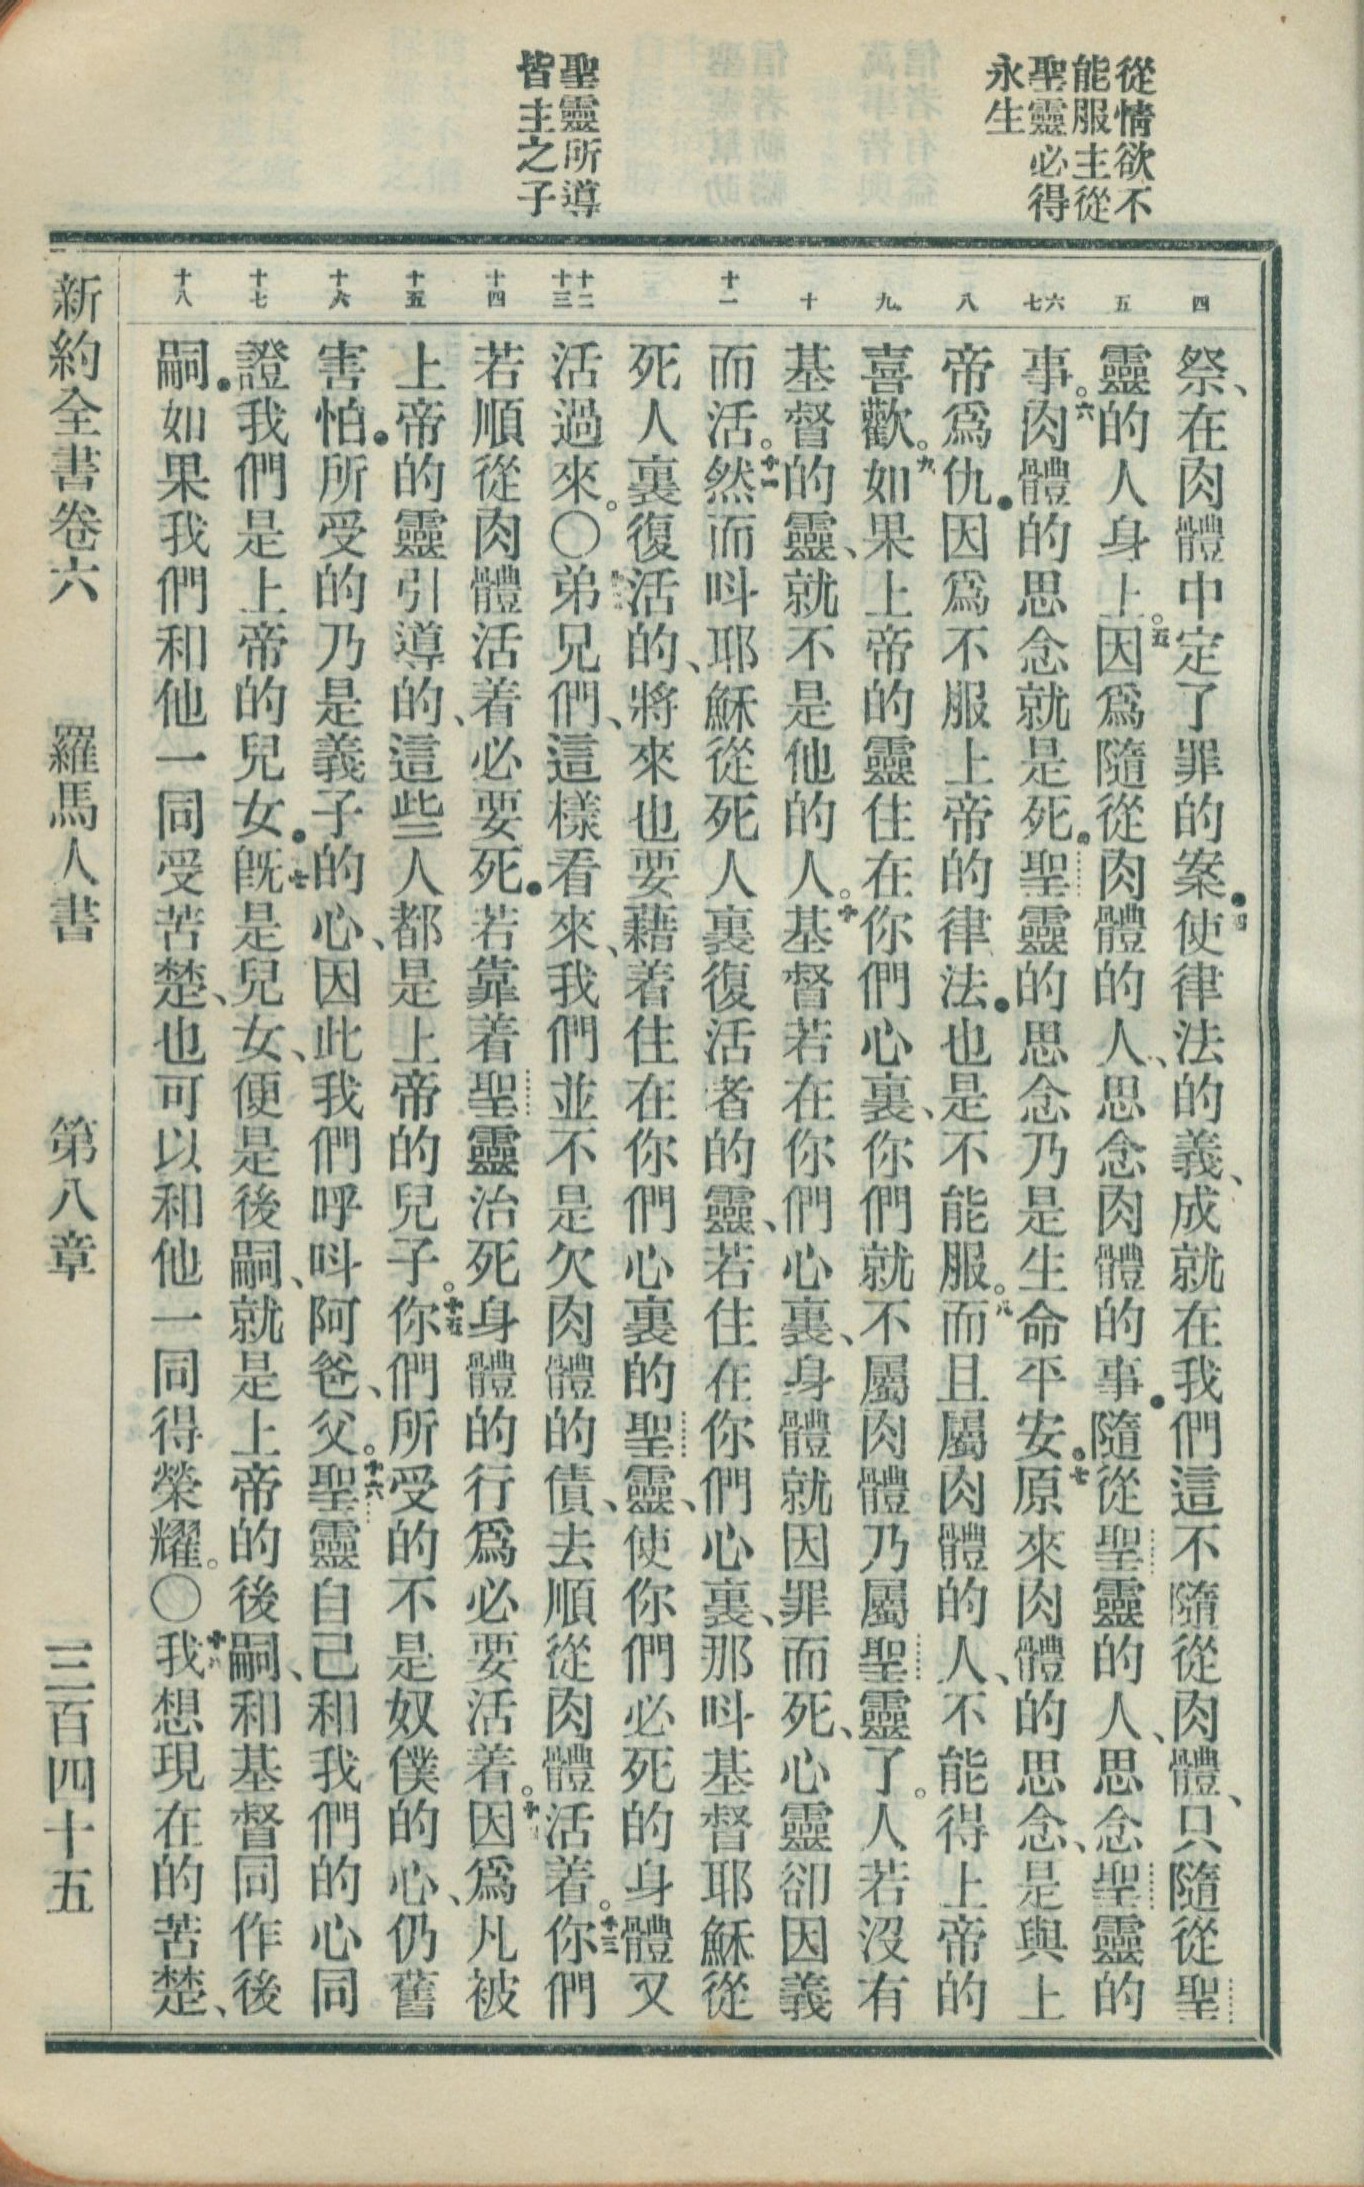 從情欲不
能服主從
聖靈必得
永生
聖靈所導
皆主之子
四
五
六
七
八
九
十
十一
十二
十三
十四
十五
十六
十七
十八
祭、在肉體中定了罪的案●四使律法的義、成就在我們這不隨從肉體、只隨從聖
靈的人身上。五因爲隨從肉體的人、思念肉體的事●隨從聖靈的人、思念聖靈的
事。六肉體的思念就是死●聖靈的思念乃是生命平安。七原來肉體的思念、是與上
帝爲仇●因爲不服上帝的律法●也是不能服。八而且屬肉體的人、不能得上帝的
喜歡。九如果上帝的靈住在你們心裏、你們就不屬肉體乃屬聖靈了。人若沒有
基督的靈、就不是他的人。十基督若在你們心裏、身體就因罪而死、心靈卻因義
而活。十一然而呌耶穌從死人裏復活者的靈、若住在你們心裏、那呌基督耶穌從
死人裏復活的、將來也要藉着住在你們心裏的聖靈、使你們必死的身體又
活過來。〇十二弟兄們、這樣看來、我們並不是欠肉體的債、去順從肉體活着。十三你們
若順從肉體活着必要死●若靠着聖靈治死身體的行爲必要活着。十四因爲凡被
上帝的靈引導的、這些人都是上帝的兒子。十五你們所受的不是奴僕的心、仍舊
害怕●所受的乃是義子的心、因此我們呼呌阿爸、父。十六聖靈自己和我們的心同
證我們是上帝的兒女●十七旣是兒女、便是後嗣、就是上帝的後嗣、和基督同作後
嗣●如果我們和他一同受苦楚、也可以和他一同得榮耀。〇十八我想現在的苦楚、
新約全書卷六　羅馬人書　第八章　三百四十五